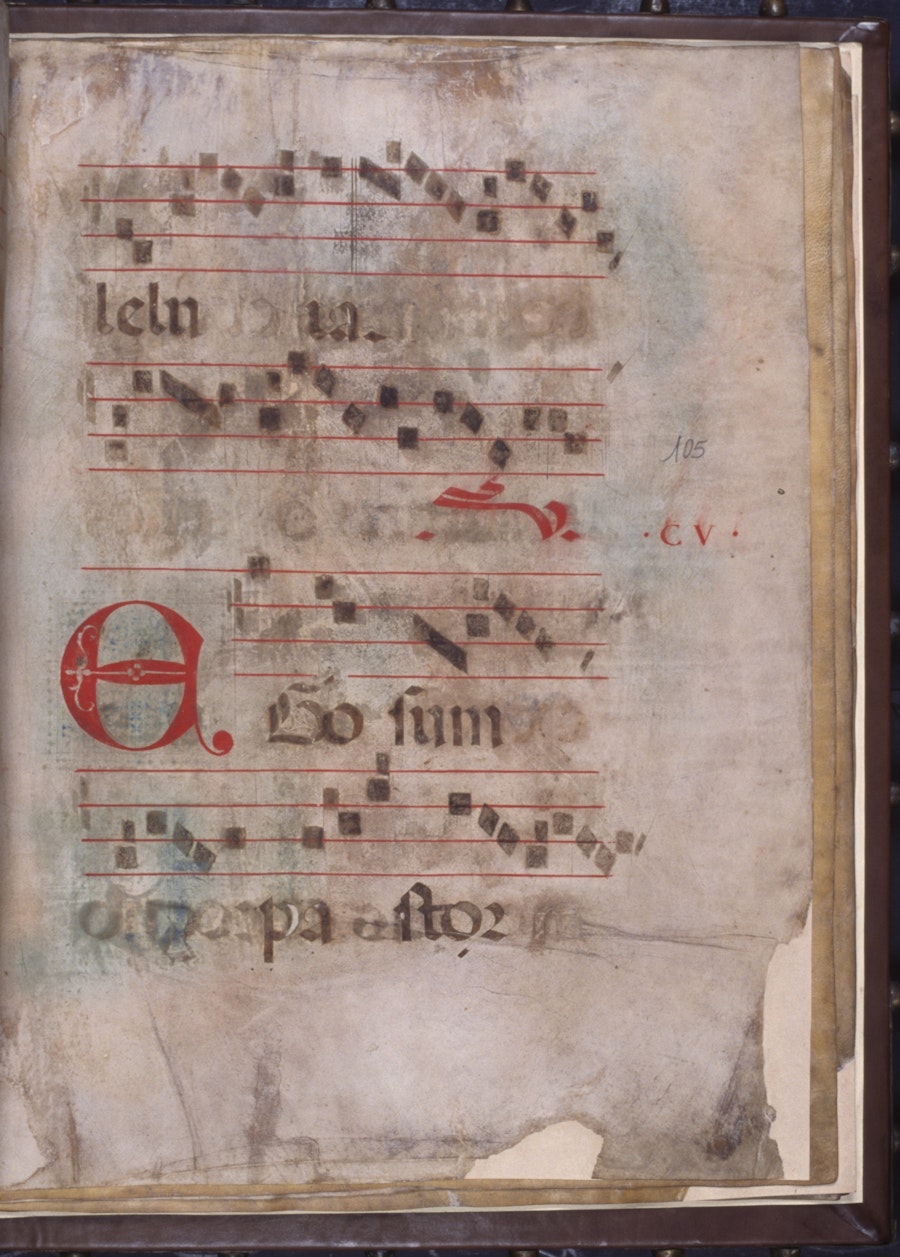 lelu ia.
105
.V.
.CV.
EGo sum
pa stor